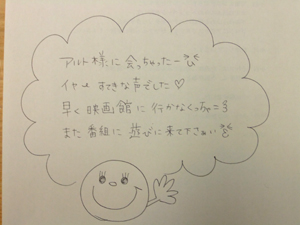 アルト様に会っちゃったー
イヤ〜 すてきな声でした♡
早く映画館に行かなくっちゃ=3
また番組に遊びに来て下さぁい